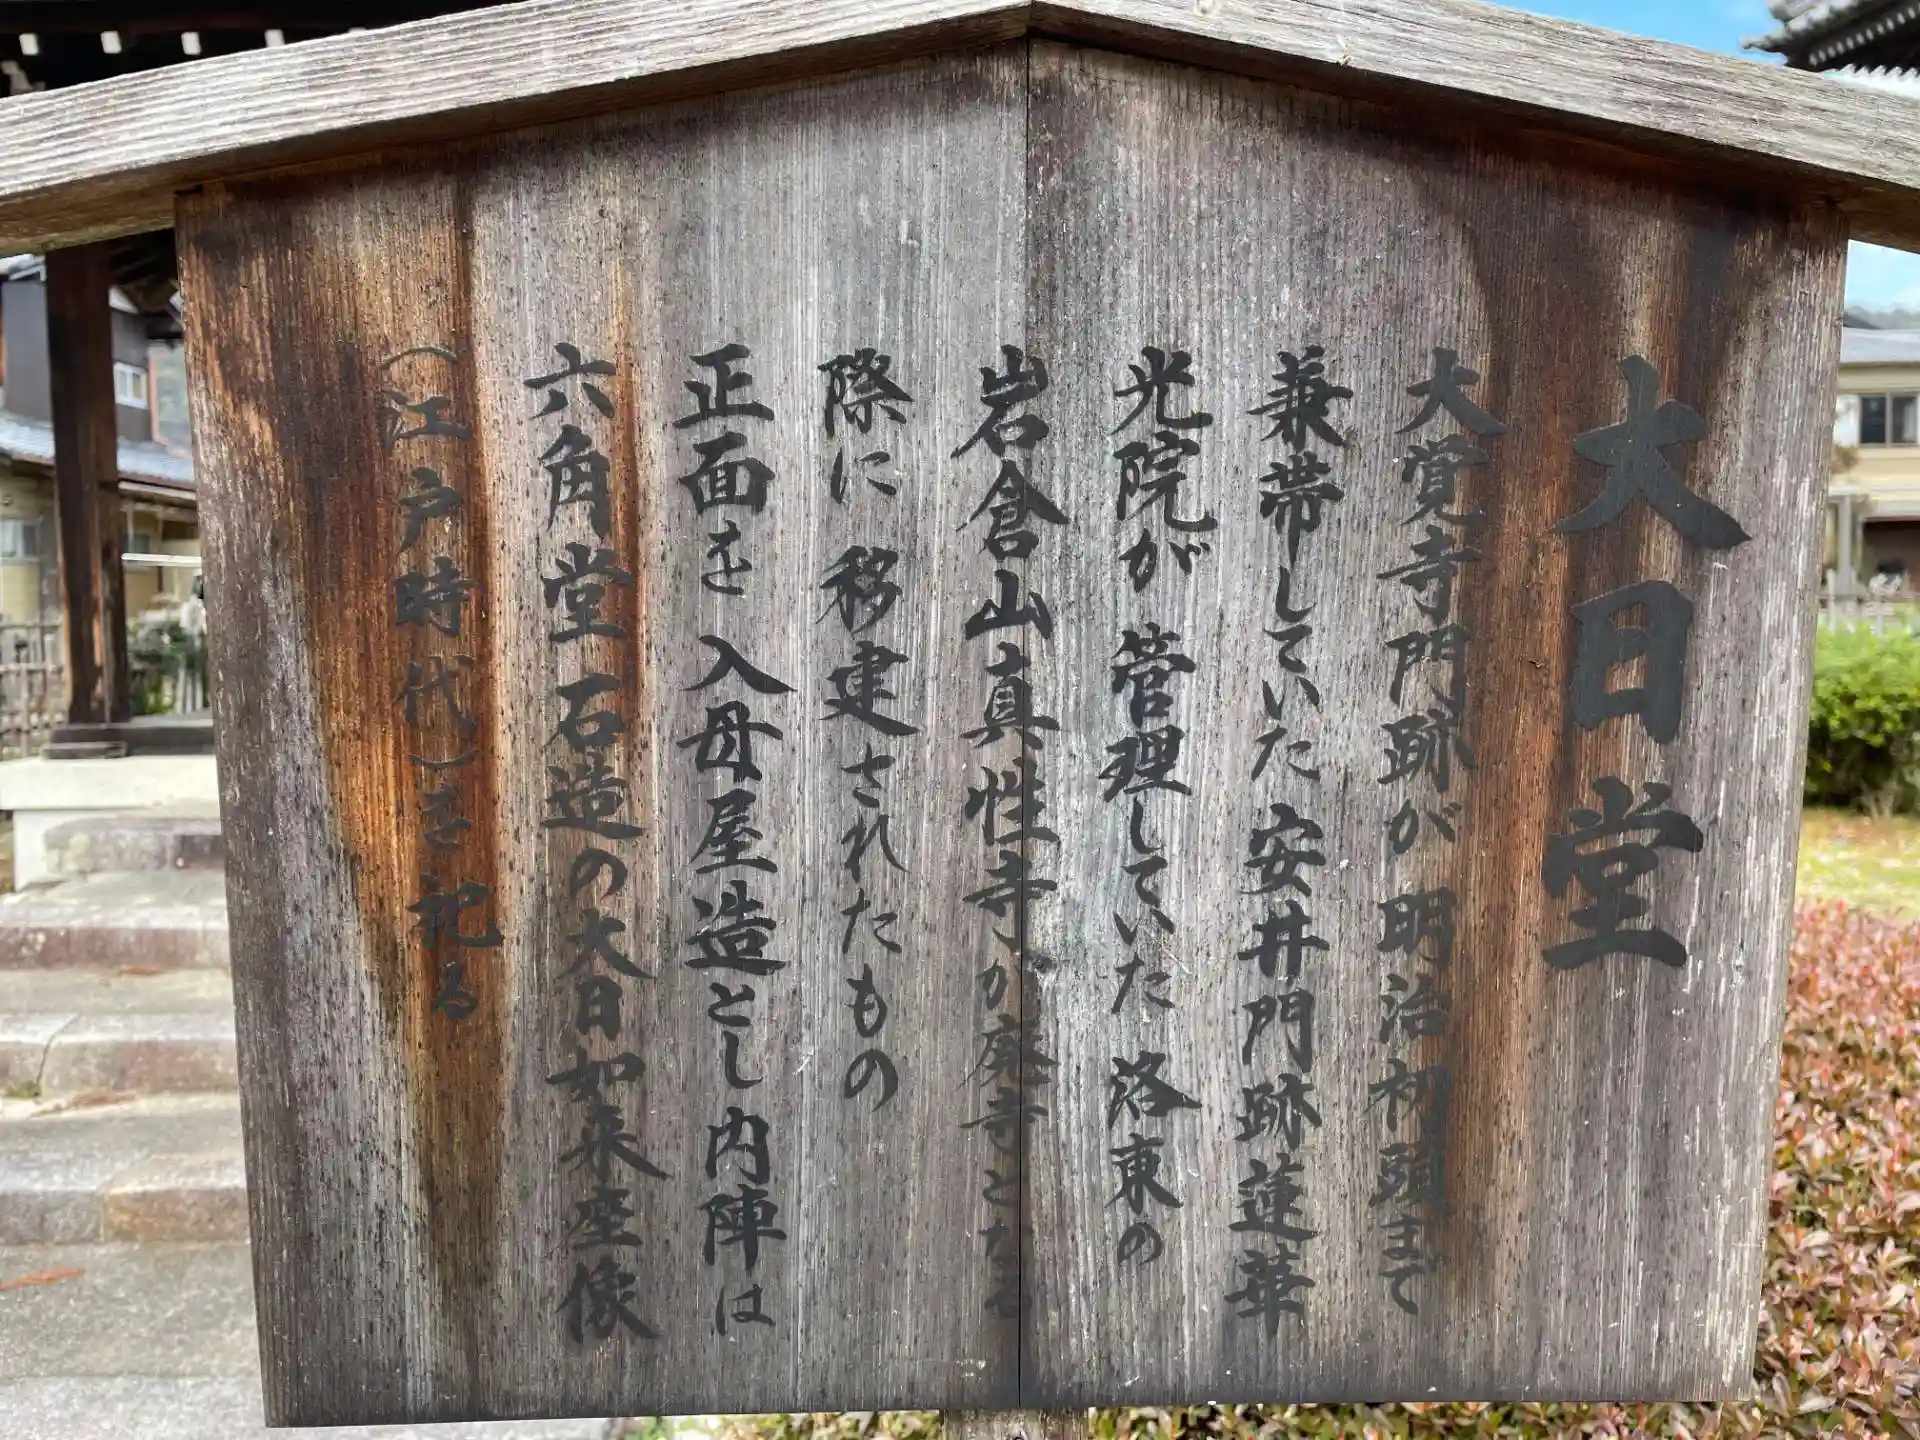 大日堂
大覚寺門跡が明治初頭まで
兼帯していた安井門跡蓮華
光院が管理していた洛東の
岩倉山真性寺が廃寺となる
際に移建されたもの
正面を入母屋造とし内陣は
六角堂石造の大日如来座像
(江戸時代)を祀る